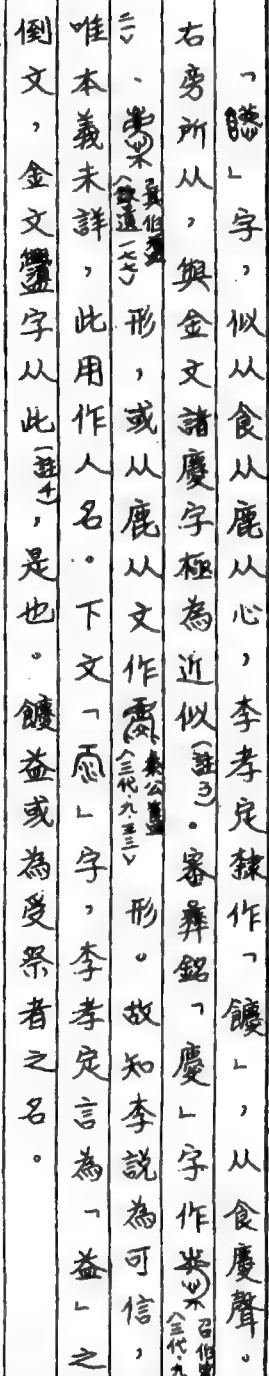 「」字，似从食从鹿从心，李孝定隸作「䭘」，从食慶聲。
右旁所从，與金文諸慶字極為近似（註3）。審彝銘「慶」字作〈三代．九．
二一〉、〈錄遺一七七〉形，或从鹿从文作秦公簋〈三代．九．三三〉形。故知李說為可信，
唯本義未詳，此用作人名。下文「」字，李孝定言為「益」之
倒文，金文字从此（註4），是也。益或為受祭者之名。